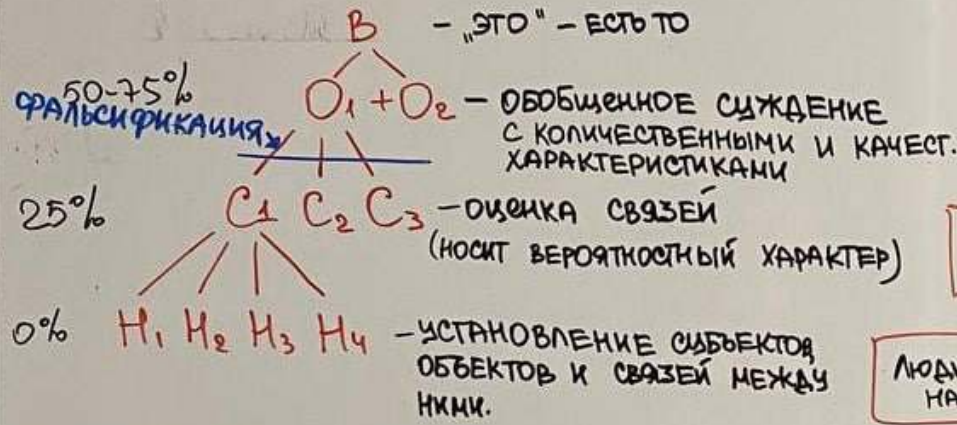 В – „ЭТО" – ЕСТЬ ТО
50-75%
ФРАЛЬСИФИКАЦИЯ
O1 + O2 – ОБОБЩЕННОЕ СУЖДЕНИЕ
С КОЛИЧЕСТВЕННЫМИ И КАЧЕСТ.
ХАРАКТЕРИСТИКАМИ
25% С1 С2 С3 – ОЦЕНКА СВЯЗЕЙ
(НОСИТ ВЕРОЯТНОСТНЫЙ ХАРАКТЕР)
0% Н1 Н2 Н3 Н4 – УСТАНОВЛЕНИЕ СУБЪЕКТОВ
ОБЪЕКТОВ И СВЯЗЕЙ МЕЖДУ
НИМИ.